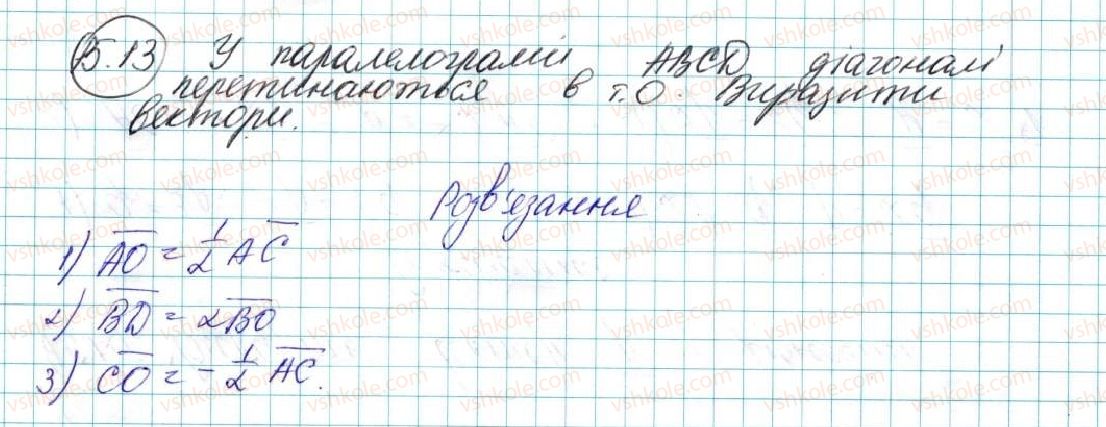 15.13 У паралелограмі ABCD діагоналі
перетинаються в т.O. Виразити
вектори.
Розв'язання
1) \overline{AO} = \frac{1}{2} \overline{AC}
2) \overline{BD} = 2\overline{BO}
3) \overline{CO} = -\frac{1}{2} \overline{AC}.